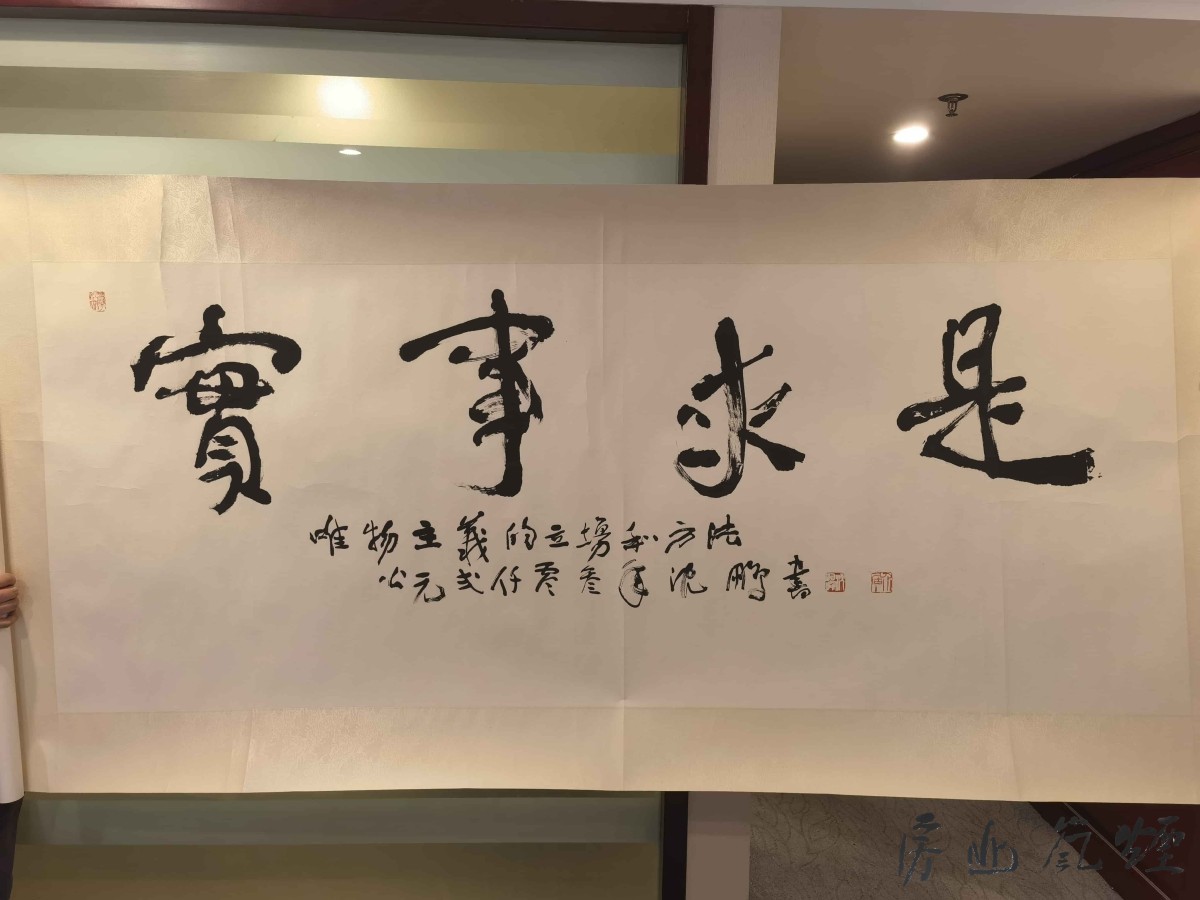 實事求是
唯物主義的立場和方法
公元弍仟零叁年沈鹏書